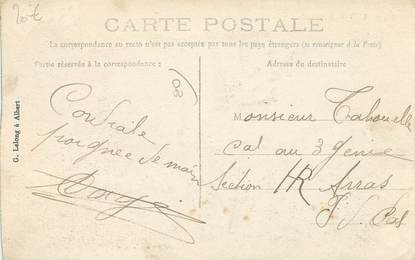 20€
CARTE POSTALE
La correspondance au recto n'est pas acceptée par tous les pays étrangers (se renseigner à la Poste)
Partie réservée à la correspondance :
Adresse du destinataire
80
G. Lelong à Albert
Cordiale
poignée de main
Monsieur Tabouelle
Cal au 3 Génie
Section HR Arras
P. d. Cal